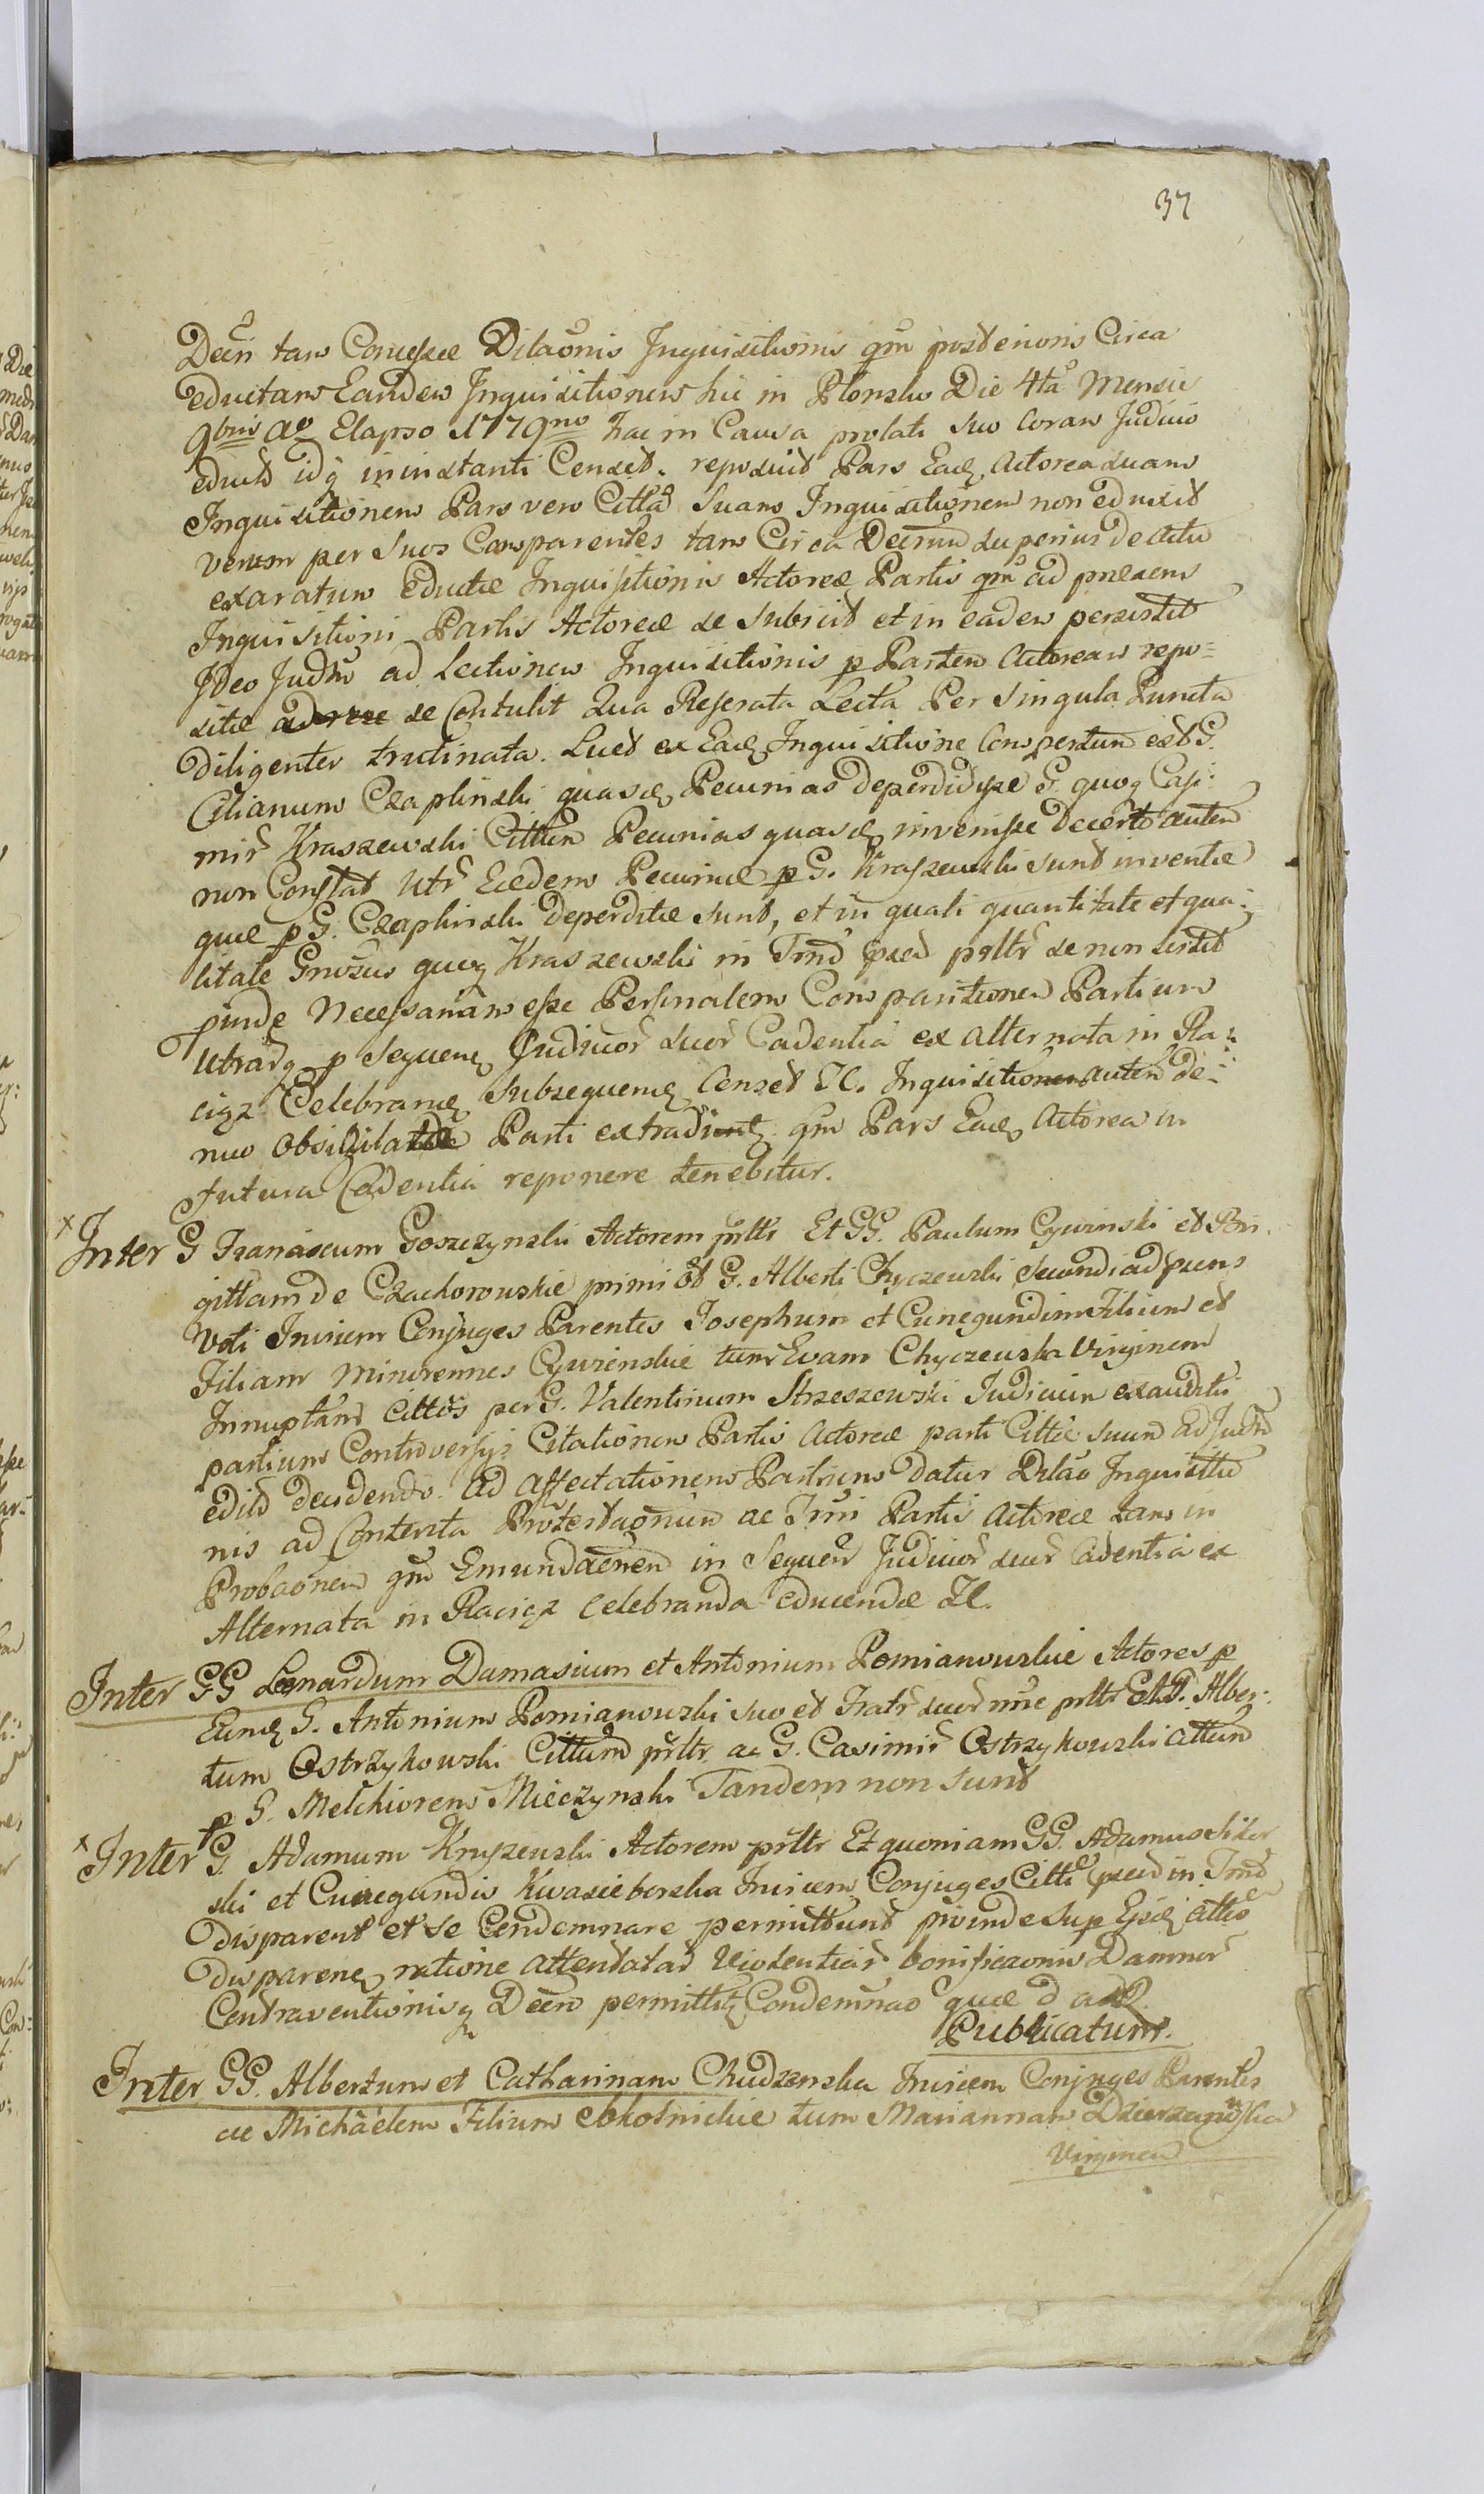 37
Decri tam Concessae Dilaōnis Inquisitionis qm posterioris Circa
eductam Eandem Inquisitionem hic in Plonsko Die 4ta Mensis
9bris ao Elapso 1779no hac in Causa prolati suo Coram Judicio
educt idq in instanti Censet. reposuit Pars Eadq Actorea suam
Inquisitionem Pars vero Citta Suam Inquisitionem non eduxit
verum per Suos Comparentes tam Circa Decrum superius de Actu
exaratum Eductae Inquisitionis Actoreae Partis qm ad praesens
Inquisitioni Partis Actoreae se subiicit et in eadem persistit
Ideo Judm ad Lectionem Inquisitionis p Partem Actoream repo=
sitae se Contulit Qua Reserata Lecta Per Singula Puncta
Diligenter trutinata. Licet ex Eadq Inquisitione Compertum est G.
Cilianum Czaplinski quasdq Pecunias deperdidisse G. quoq Casi:
mir Kraszewski Cittum Pecunias quasdq invenisse Decerto autem
non Constat Utr Eaedem Pecuniae p G. Kraszewski sunt inventae
quae p G. Czaplinski deperditae sunt, et in quali quantitate et qua:
litate Gnosus quoq Kraszewski in Tmo psed prltr se non sistit
pinde Necessariam esse Personalem Comparitionem Partium
Utrarq p Sequenq Judicior suor Cadentia ex Alternata in Ra:
ciąz Celebranq Subsequenq Censet JC. Inquisitionem autem de:
nuo Obsigilatae Parti extradi qm Pars Eadq Actorea in
futura Cadentia reponere tenebitur.
x Inter G Franciscum Goszczynski Actorem prltr Et GG. Paulum Cywinski et Bri:
gittam de Czachorowskie primi ot G. Alberti Chyczewski Secundi ad praens
Voti Invicem Conjuges Parentes Josephum et Cunegundim Filium et
Filiam Minorennes Cywinskie tum Evam Chyczewska Virginem
Innuptam Cittos per G. Valentinum Strzeszewski Judicium exauditis
partium Controversijs Citationem Partis Actoreae parti Cittae suum ad Judm
edild decidendo. Ad Affectationem Partium datur Dilāo Inquisitio
nis ad Contenta Protestaōnum ac Tmi Partis Actoreae tam in
Probaōnem qm Emundaōnem in Sequen Judicior suor Cadentia ex
Alternata in Raciąz celebranda educendae JC.
Inter GG Leonardum Damasium et Antonium Pomianowskie Actores p
Eundq G. Antonium Pomianowski suo et Fratr suor nne prltr Et G. Alber:
tum Ostrzykowski Cittum prltr ac G. Casimir Ostrzykowski Cittum
p G. Melchiorem Mieczynski Tandem non sunt
x Inter G. Adamum Kryszewski Actorem prltr Et quoniam GG. Adamus Sikor
ski et Cunegundis Kwasieborska Invicem Conjuges Citti psed in Tmo
disparent et se Condemnare permittunt proinde sup Ejsdq Cittis
Disparenq ratione attentatar Violentiar bonificaonis Damnor
Contraventionisq Decro permittitq Condemnao quae d adQ
Publicatum.
Inter GG. Albertum et Catharinam Chudzenska Invicem Conjuges Parentes
ac Michaelem Filium Skolnickie tum Mariannam Dzierzanowska
Virginem